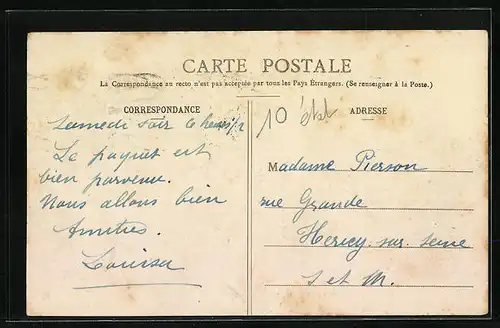 CARTE POSTALE
La Correspondance au recto n'est pas acceptée par tous les Pays Etrangers. (Se renseigner à la Poste.)
CORRESPONDANCE
Samedi soir 6 heures 1/2
Le paquet est
bien parvenu.
Nous allons bien
Amitiés.
Louisa
10
ADRESSE
Madame Pierson
rue Grande
Hericy sur Seine
S et M.